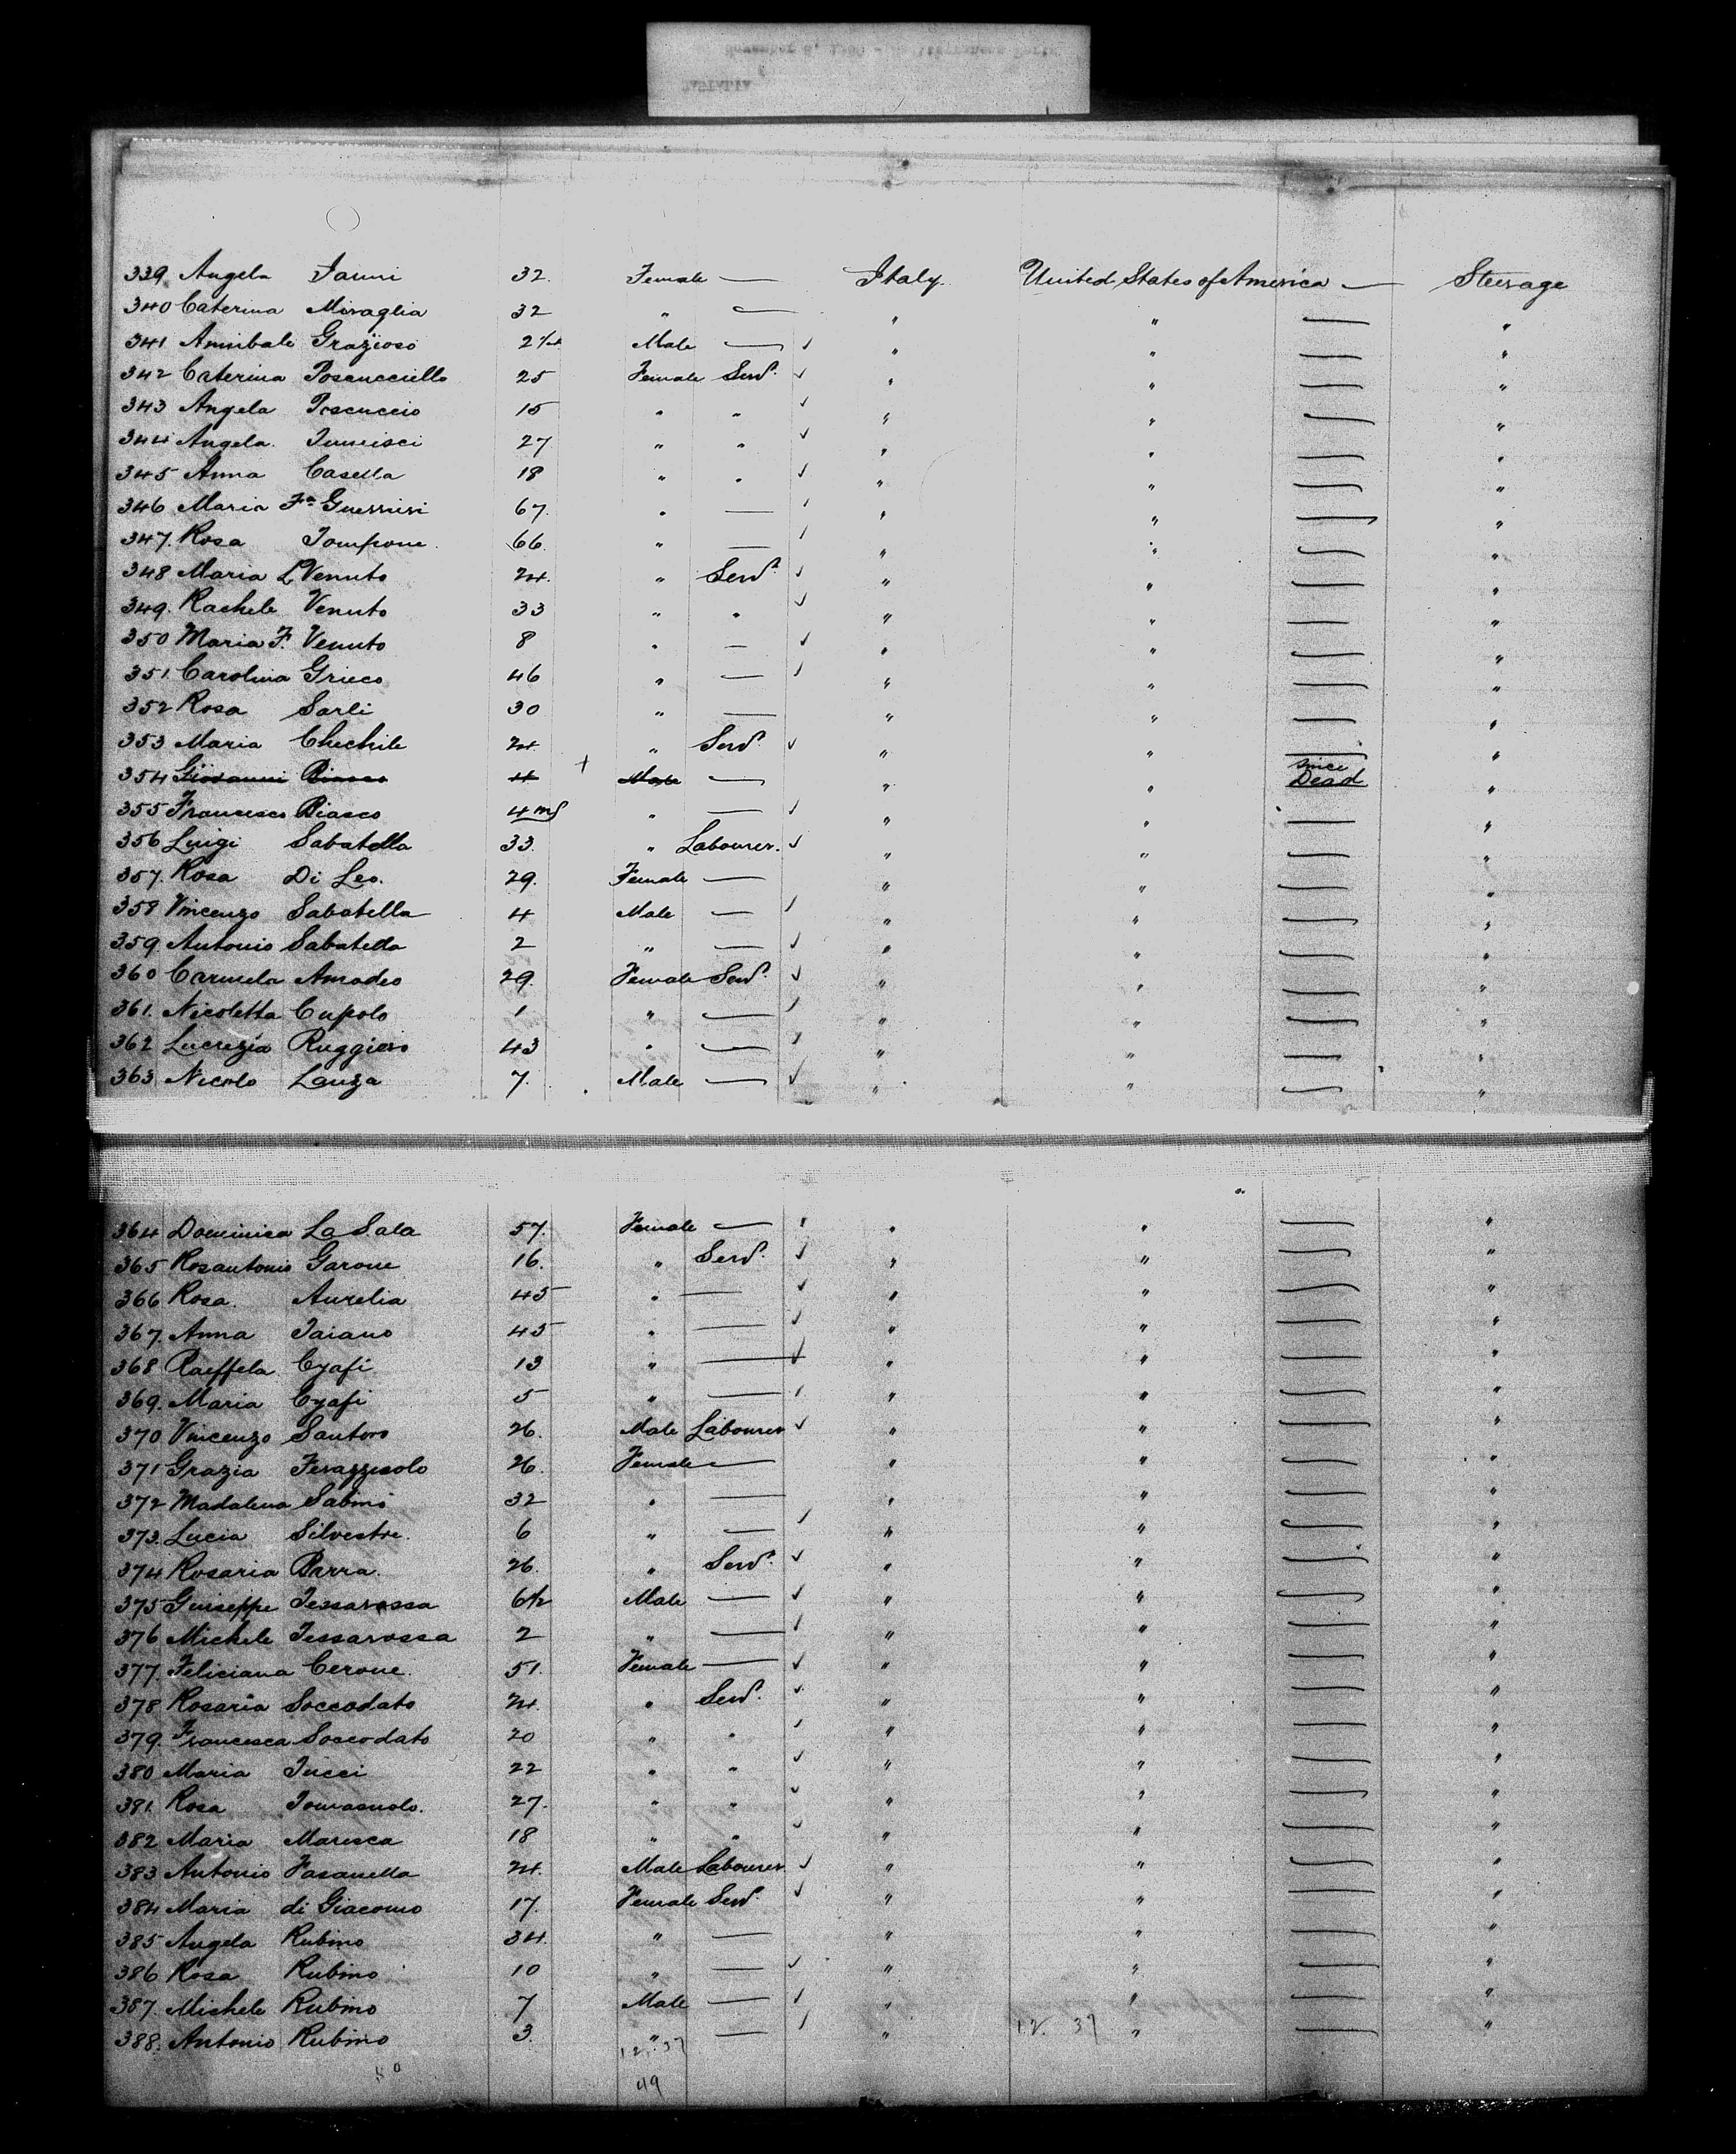 339. Angela Ianni 32. Female — Italy. United States of America — Steerage
340 Caterina Miraglia 32 " — " " — "
341 Annibale Grazioso 2 Male — ✓ " " — "
342 Caterina 25 Female Servt. ✓ " " — "
343 Angela 15 " " ✓ " " — "
344 Angela. 27 " " ✓ " " — "
345 Anna Casella 18 " " ✓ " " — "
346 Maria Fa 67. " — ✓ " " — "
347. Rosa 66. " — ✓ " " — "
348 Maria L. Venuto 24. " Servt. ✓ " " — "
349. Rachele Venuto 33 " " ✓ " " — "
350 Maria F. Venuto 8 " — ✓ " " — "
351. Carolina Grieco 46 " — ✓ " " — "
352 Rosa Sarli 30 " — " " — "
353 Maria Chechile 24. " Servt. ✓ " " — "
354 Giovanni Biasco 4 + Male — " " since Dead "
355 Francesco Biasco 4 ms " — ✓ " " — "
356 Luigi Sabatella 33. " Labourer. ✓ " " — "
357. Rosa Di Leo. 29. Female — " " — "
358 Vincenzo Sabatella 4 Male — ✓ " " — "
359. Antonio Sabatella 2 " — ✓ " " — "
360 Carmela Amodeo 29. Female Servt. ✓ " " — "
361. Nicoletta Cupolo 1 " — ✓ " " — "
362 Lucrezia Ruggiero 43 " — ✓ " " — "
363 Nicolo Lanza 7. Male — ✓ " " — "
364 Dominica La Sala 57. Female — ✓ " " — "
365 Rosantonio Garone 16. " Servt. ✓ " " — "
366 Rosa. Aurelia 45 " — ✓ " " — "
367. Anna Taiano 45 " — ✓ " " — "
368 Raeffela Cyafi 13 " — ✓ " " — "
369. Maria Cyafi 5 " — ✓ " " — "
370 Vincenzo Santoro 26. Male Labourer ✓ " " — "
371 Grazia 26. Female — " " — "
372 Madalena Sabino 32 " — " " — "
373. Lucia Silvestre. 6 " — ✓ " " — "
374 Rosaria Parra. 26. " Servt. ✓ " " — "
375 Guiseppe Tessarossa 6½ Male — ✓ " " — "
376 Michele Tessarossa 2 " — ✓ " " — "
377. Feliciana Cerone. 51. Female — ✓ " " — "
378 Rosaria Soccodato 24. " Servt. ✓ " " — "
379. Francesca Soccodato 20 " " ✓ " " — "
380 Maria Tucci 22 " " ✓ " " — "
381. Rosa Tomasuolo. 27. " " ✓ " " — "
382 Maria Maresca 18 " " ✓ " " — "
383 Antonio Fasanella 24. Male Labourer ✓ " " — "
384 Maria di Giacomo 17. Female Servt. ✓ " " — "
385 Angela Rubino 34. " — " " — "
386 Rosa Rubino 10 " — ✓ " " — "
387. Michele Rubino 7 Male — ✓ " " — "
388. Antonio Rubino 3. " — ✓ " 12. 37 " — "
12. 37
49